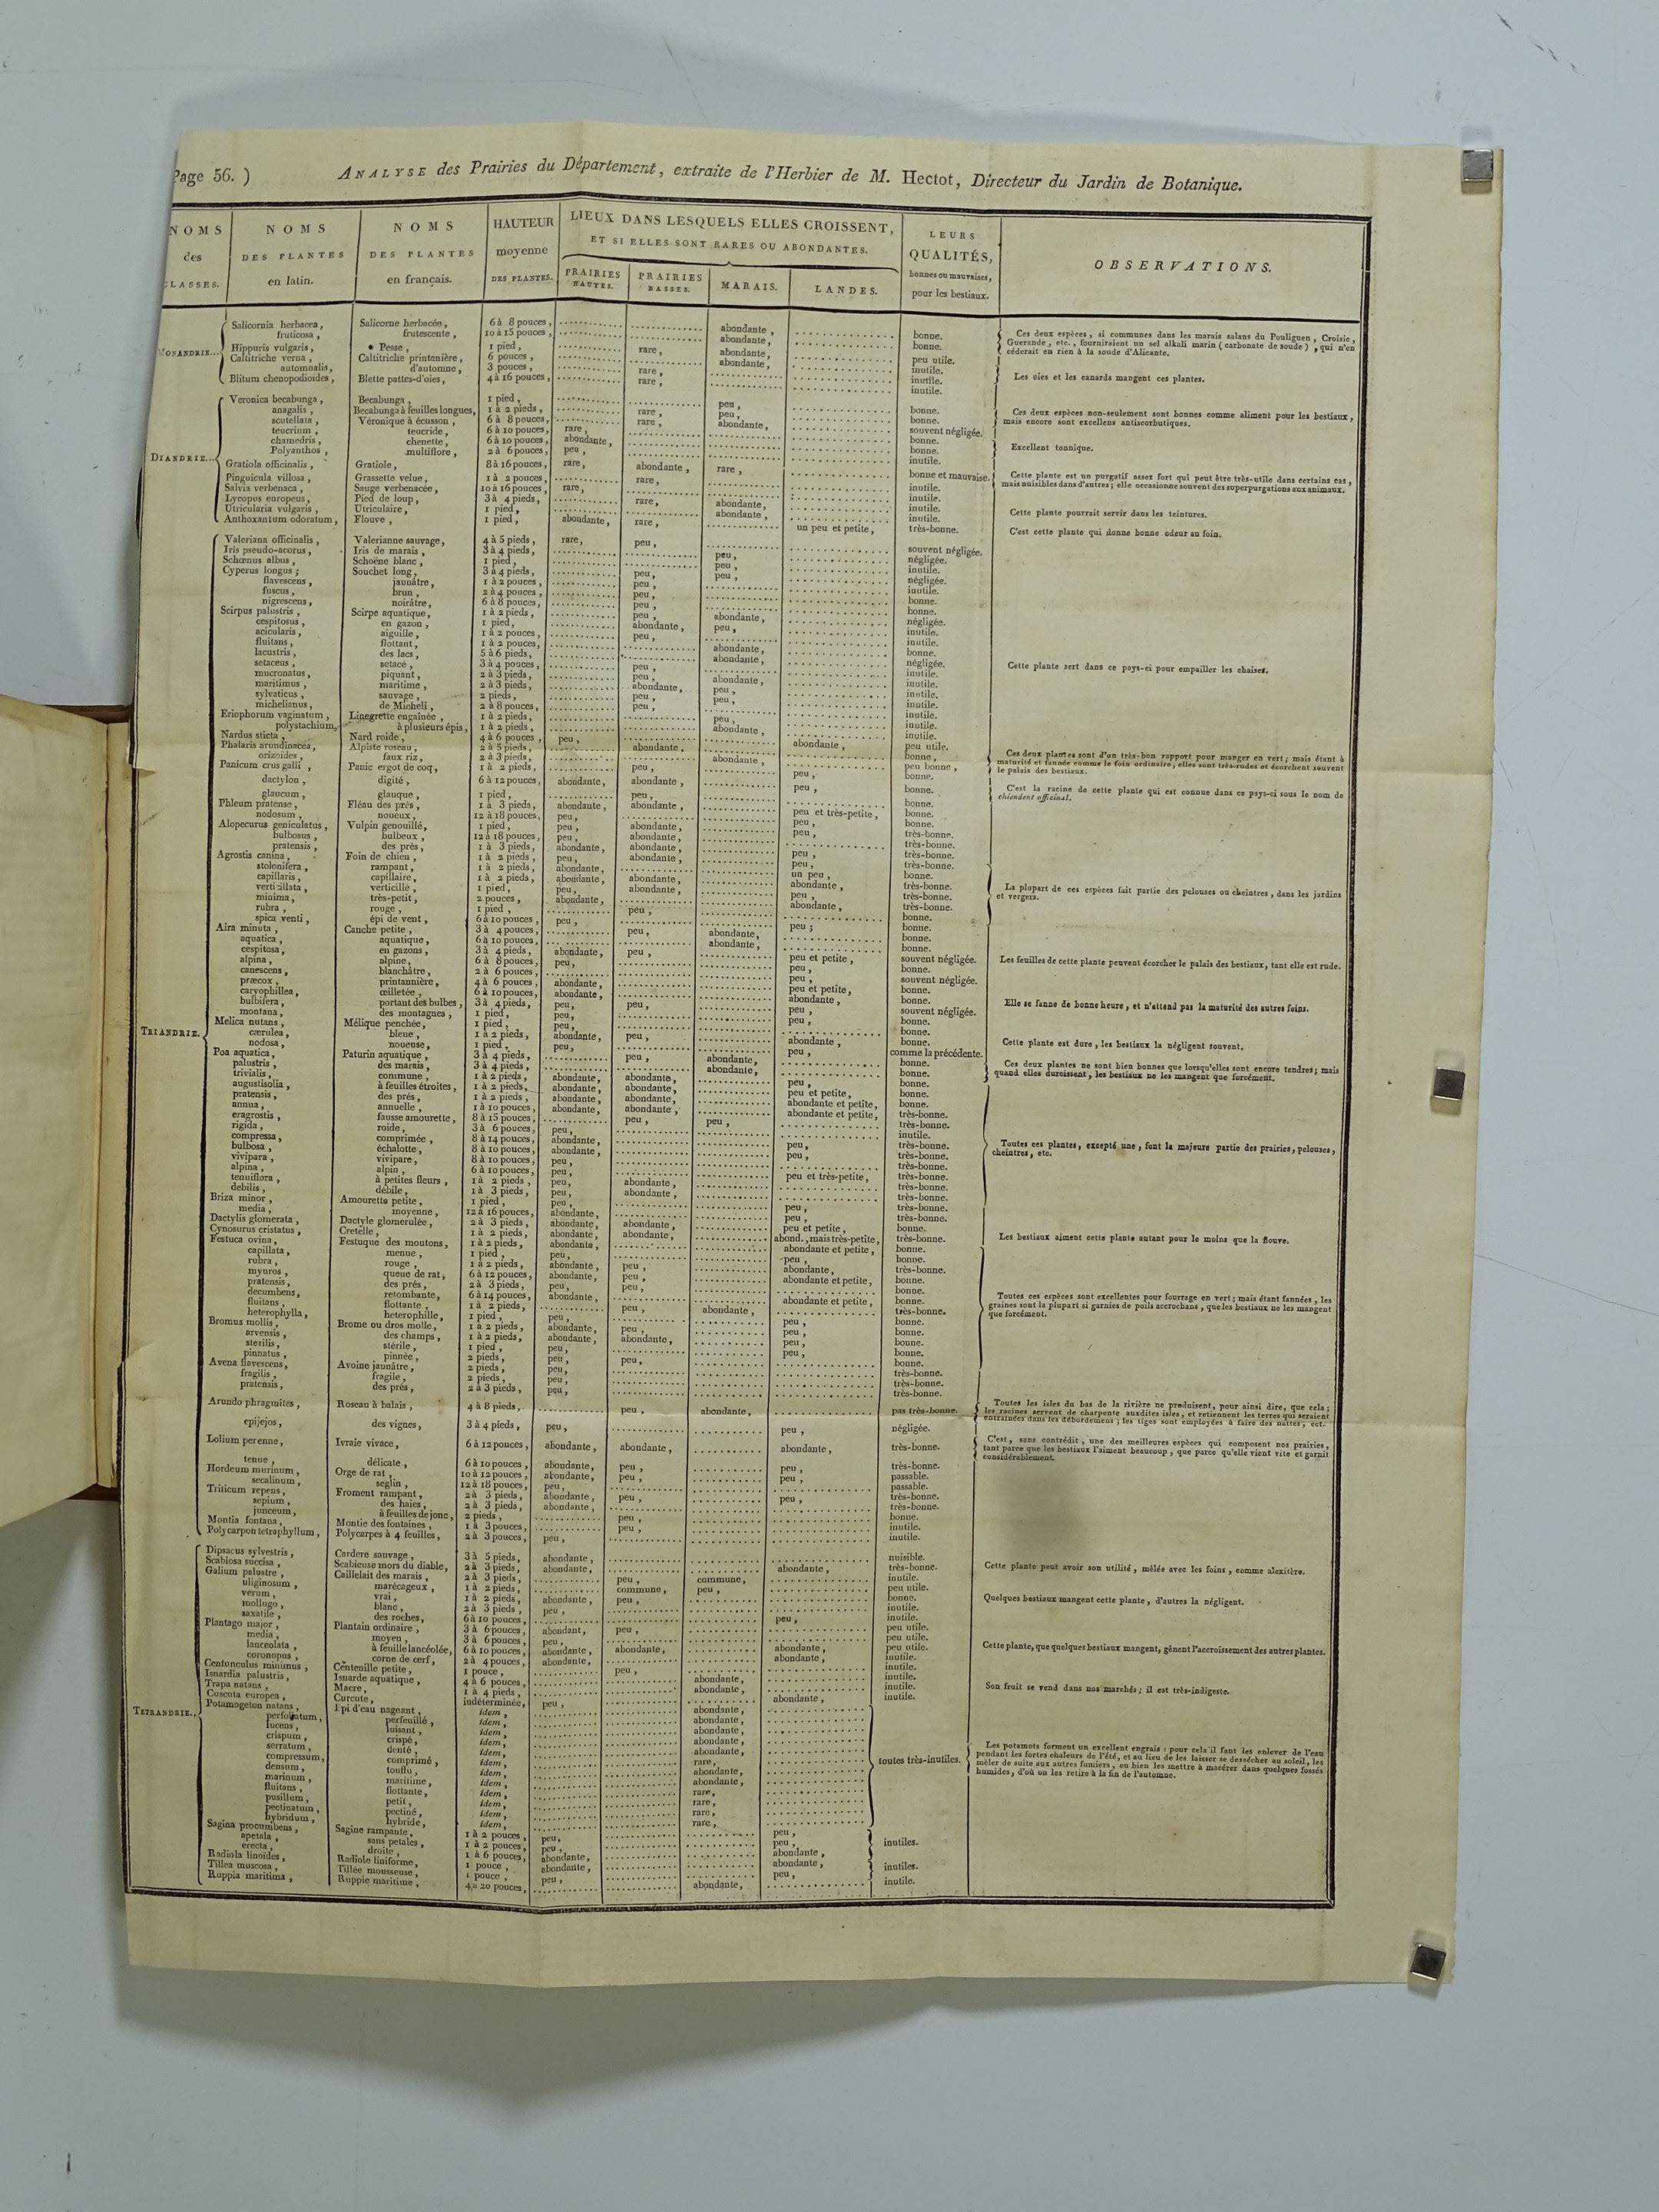 Page 56. )
ANALYSE des Prairies du Département, extraite de l'Herbier de M. Hectot, Directeur du Jardin de Botanique.
NOMS des CLASSES.
NOMS DES PLANTES en latin.
NOMS DES PLANTES en français.
HAUTEUR moyenne DES PLANTES.
LIEUX DANS LESQUELS ELLES CROISSENT, ET SI ELLES SONT RARES OU ABONDANTES.
PRAIRIES HAUTES.
PRAIRIES BASSES.
MARAIS.
LANDES.
LEURS QUALITÉS, bonnes ou mauvaises, pour les bestiaux.
OBSERVATIONS.
MONANDRIE...
Salicornia herbacea, Salicorne herbacée, 6 à 8 pouces, abondante, bonne.
fruticosa, frutescente, 10 à 15 pouces, abondante, bonne.
Ces deux espèces, si communes dans les marais salans du Pouliguen, Croisic,
Guerande, etc., fourniraient un sel alkali marin (carbonate de soude), qui n'en
céderait en rien à la soude d'Alicante.
Hippuris vulgaris, Pesse, 1 pied, rare, abondante, peu utile.
Callitriche verna, Callitriche printanière, 6 pouces, abondante, inutile.
automnalis, d'automne, 3 pouces, rare, inutile.
Blitum chenopodioides, Blette pattes-d'oies, 4 à 16 pouces, rare, inutile.
Les oies et les canards mangent ces plantes.
DIANDRIE...
Veronica becabunga, Becabunga, 1 pied, peu, bonne.
anagalis, Becabunga à feuilles longues, 1 à 2 pieds, rare, peu, bonne.
Ces deux espèces non-seulement sont bonnes comme aliment pour les bestiaux,
mais encore sont excellens antiscorbutiques.
scutellata, Véronique à écusson, 6 à 8 pouces, rare, abondante, souvent négligée.
teucrium, teucride, 6 à 10 pouces, rare, bonne.
chamedris, chenette, 6 à 10 pouces, abondante, bonne. Excellent tonnique.
Polyanthos, multiflore, 2 à 6 pouces, peu, inutile.
Gratiola officinalis, Gratiole, 8 à 16 pouces, rare, abondante, rare, bonne et mauvaise.
Cette plante est un purgatif assez fort qui peut être très-utile dans certains cas,
mais nuisibles dans d'autres; elle occasionne souvent des superpurgations aux animaux.
Pinguicula villosa, Grassette velue, 1 à 2 pouces, rare, inutile.
Salvia verbenaca, Sauge verbenacée, 10 à 16 pouces, rare, inutile.
Lycopus europeus, Pied de loup, 3 à 4 pieds, rare, abondante, inutile. Cette plante pourrait servir dans les teintures.
Utricularia vulgaris, Utriculaire, 1 pied, abondante, inutile.
Anthoxantum odoratum, Flouve, 1 pied, abondante, rare, un peu et petite, très-bonne. C'est cette plante qui donne bonne odeur au foin.
TRIANDRIE.
Valeriana officinalis, Valerianne sauvage, 4 à 5 pieds, rare, peu, souvent négligée.
Iris pseudo-acorus, Iris de marais, 3 à 4 pieds, peu, négligée.
Schœnus albus, Schoëne blanc, 1 pied, peu, inutile.
Cyperus longus; Souchet long, 3 à 4 pieds, peu, peu, négligée.
flavescens, jaunâtre, 1 à 2 pouces, peu, inutile.
fuscus, brun, 2 à 4 pouces, peu, bonne.
nigrescens, noirâtre, 6 à 8 pouces, peu, bonne.
Scirpus palustris, Scirpe aquatique, 1 à 2 pieds, peu, abondante, négligée.
cespitosus, en gazon, 1 pied, abondante, peu, inutile.
acicularis, aiguille, 1 à 2 pouces, peu, inutile.
fluitans, flottant, 1 à 2 pouces, abondante, bonne.
lacustris, des lacs, 5 à 6 pieds, abondante, négligée. Cette plante sert dans ce pays-ci pour empailler les chaises.
setaceus, setacé, 3 à 4 pouces, peu, inutile.
mucronatus, piquant, 2 à 3 pieds, peu, abondante, inutile.
maritimus, maritime, 2 à 3 pieds, abondante, peu, inutile.
sylvaticus, sauvage, 2 pieds, peu, peu, inutile.
michelianus, de Micheli, 2 à 8 pouces, peu, inutile.
Eriophorum vaginatum, Linegrette engaînée, 1 à 2 pieds, peu, inutile.
polystachium, à plusieurs épis, 1 à 2 pieds, abondante, inutile.
Nardus sticta, Nard roide, 4 à 6 pouces, peu, abondante, peu utile.
Phalaris arundinacea, Alpiste roseau, 2 à 5 pieds, abondante, bonne,
orizoides, faux riz, 2 à 3 pieds, abondante, peu bonne,
Panicum crus galli, Panic ergot de coq, 1 à 2 pieds, peu, peu, bonne.
Ces deux plantes sont d'un très-bon rapport pour manger en vert; mais étant à
maturité et fannée comme le foin ordinaire, elles sont très-rudes et écorchent souvent
le palais des bestiaux.
dactylon, digité, 6 à 12 pouces, abondante, abondante, peu, bonne.
C'est la racine de cette plante qui est connue dans ce pays-ci sous le nom de
chiendent officinal.
glaucum, glauque, 1 pied, peu, bonne.
Phleum pratense, Fléau des prés, 1 à 3 pieds, abondante, abondante, peu et très-petite, bonne.
nodosum, noueux, 12 à 18 pouces, peu, peu, bonne.
Alopecurus geniculatus, Vulpin genouillé, 1 pied, peu, abondante, peu, très-bonne.
bulbosus, bulbeux, 12 à 18 pouces, peu, abondante, très-bonne.
pratensis, des prés, 1 à 3 pieds, abondante, abondante, peu, très-bonne.
Agrostis canina, Foin de chien, 1 à 2 pieds, peu, abondante, peu, très-bonne.
stolonifera, rampant, 1 à 2 pieds, abondante, un peu, bonne.
capillaris, capillaire, 1 à 2 pieds, abondante, abondante, abondante, très-bonne.
verticillata, verticillé, 1 pied, peu, abondante, peu, très-bonne.
minima, très-petit, 2 pouces, abondante, abondante, très-bonne.
rubra, rouge, 1 pied, peu, bonne.
spica venti, épi de vent, 6 à 10 pouces, peu, peu; bonne.
La plupart de ces espèces fait partie des pelouses ou cheintres, dans les jardins
et vergers.
Aira minuta, Canche petite, 3 à 4 pouces, peu, abondante, bonne.
aquatica, aquatique, 6 à 10 pouces, abondante, bonne.
cespitosa, en gazons, 3 à 4 pieds, abondante, peu, peu et petite, souvent négligée. Les feuilles de cette plante peuvent écorcher le palais des bestiaux, tant elle est rude.
alpina, alpine, 6 à 8 pouces, peu, peu, bonne.
canescens, blanchâtre, 2 à 6 pouces, peu, souvent négligée.
præcox, printannière, 4 à 6 pouces, abondante, peu et petite, bonne.
caryophillea, œilletée, 6 à 10 pouces, abondante, abondante, bonne. Elle se fanne de bonne heure, et n'attend pas la maturité des autres foins.
bulbifera, portant des bulbes, 3 à 4 pieds, peu, peu, peu, souvent négligée.
montana, des montagnes, 1 pied, peu, peu, bonne.
Melica nutans, Mélique penchée, 1 pied, peu, bonne.
cærulea, bleue, 1 à 2 pieds, abondante, peu, abondante, bonne. Cette plante est dure, les bestiaux la négligent souvent.
nodosa, noueuse, 1 pied, peu, peu, comme la précédente.
Poa aquatica, Paturin aquatique, 3 à 4 pieds, peu, abondante, bonne.
palustris, des marais, 3 à 4 pieds, abondante, bonne.
Ces deux plantes ne sont bien bonnes que lorsqu'elles sont encore tendres; mais
quand elles durcissent, les bestiaux ne les mangent que forcément.
trivialis, commune, 1 à 2 pieds, abondante, abondante, peu, bonne.
augustisolia, à feuilles étroites, 1 à 2 pieds, abondante, abondante, peu et petite, bonne.
pratensis, des prés, 1 à 2 pieds, abondante, abondante, abondante et petite, bonne.
annua, annuelle, 1 à 10 pouces, abondante, abondante, abondante et petite, très-bonne.
eragrostis, fausse amourette, 8 à 15 pouces, peu, peu, très-bonne.
rigida, roide, 3 à 6 pouces, peu, inutile.
compressa, comprimée, 8 à 14 pouces, abondante, peu, très-bonne.
bulbosa, échalotte, 8 à 10 pouces, abondante, peu, très-bonne.
vivipara, vivipare, 8 à 10 pouces, peu, très-bonne.
alpina, alpin, 6 à 10 pouces, peu, peu et très-petite, très-bonne.
tenuiflora, à petites fleurs, 1 à 2 pieds, peu, abondante, très-bonne.
debilis, débile, 1 à 3 pieds, peu, abondante, très-bonne.
Toutes ces plantes, excepté une, font la majeure partie des prairies, pelouses,
cheintres, etc.
Briza minor, Amourette petite, 1 pied, peu, peu, très-bonne.
media, moyenne, 12 à 16 pouces, abondante, peu, très-bonne.
Dactylis glomerata, Dactyle glomerulée, 2 à 3 pieds, abondante, abondante, peu et petite, bonne.
Cynosurus cristatus, Cretelle, 1 à 2 pieds, abondante, abondante, abond., mais très-petite, très-bonne. Les bestiaux aiment cette plante autant pour le moins que la flouve.
Festuca ovina, Festuque des moutons, 1 à 2 pieds, abondante, abondante et petite, bonne.
capillata, menue, 1 pied, peu, peu, bonne.
rubra, rouge, 1 à 2 pieds, abondante, peu, abondante, très-bonne.
myuros, queue de rat, 6 à 12 pouces, abondante, peu, abondante et petite, bonne.
pratensis, des prés, 2 à 3 pieds, peu, peu, bonne.
decumbens, retombante, 6 à 14 pouces, abondante, abondante et petite, bonne.
fluitans, flottante, 1 à 2 pieds, peu, abondante, très-bonne.
heterophylla, heterophille, 1 pied, peu, peu, bonne.
Bromus mollis, Brome ou dros molle, 1 à 2 pieds, abondante, peu, peu, bonne.
arvensis, des champs, 1 à 2 pieds, abondante, abondante, peu, bonne.
sterilis, stérile, 1 pied, peu, peu, bonne.
pinnatus, pinnée, 2 pieds, peu, peu, bonne.
Toutes ces espèces sont excellentes pour fourrage en vert; mais étant fannées, les
graines sont la plupart si garnies de poils accrochans, que les bestiaux ne les mangent
que forcément.
Avena flavescens, Avoine jaunâtre, 2 pieds, peu, très-bonne.
fragilis, fragile, 2 pieds, peu, très-bonne.
pratensis, des prés, 2 à 3 pieds, peu, très-bonne.
Arundo phragmites, Roseau à balais, 4 à 8 pieds, peu, abondante, pas très-bonne.
Toutes les isles du bas de la rivière ne produisent, pour ainsi dire, que cela;
les racines servent de charpente auxdites isles, et retiennent les terres qui seraient
entraînées dans les débordemens; les tiges sont employées à faire des nattes, ect.
epijejos, des vignes, 3 à 4 pieds, peu, peu, négligée.
Lolium perenne, Ivraie vivace, 6 à 12 pouces, abondante, abondante, abondante, très-bonne.
C'est, sans contrédit, une des meilleures espèces qui composent nos prairies,
tant parce que les bestiaux l'aiment beaucoup, que parce qu'elle vient vite et garnit
considérablement.
tenue, délicate, 6 à 10 pouces, abondante, peu, peu, très-bonne.
Hordeum murinum, Orge de rat, 10 à 12 pouces, abondante, peu, peu, passable.
secalinum, seglin, 12 à 18 pouces, peu, passable.
Triticum repens, Froment rampant, 2 à 3 pieds, abondante, peu, peu, très-bonne.
sepium, des haies, 2 à 3 pieds, abondante, très-bonne.
junceum, à feuilles de jonc, 2 pieds, peu, bonne.
Montia fontana, Montie des fontaines, 1 à 3 pouces, peu, inutile.
Polycarpon tetraphyllum, Polycarpes à 4 feuilles, 2 à 3 pouces, peu, inutile.
TETRANDRIE.
Dipsacus sylvestris, Cardere sauvage, 3 à 5 pieds, abondante, nuisible.
Scabiosa succisa, Scabieuse mors du diable, 2 à 3 pieds, abondante, abondante, très-bonne. Cette plante peut avoir son utilité, mêlée avec les foins, comme alexitère.
Galium palustre, Caillelait des marais, 2 à 3 pieds, peu, commune, inutile.
uliginosum, marécageux, 1 à 2 pieds, commune, peu, peu utile.
verum, vrai, 1 à 2 pieds, abondante, peu, bonne. Quelques bestiaux mangent cette plante, d'autres la négligent.
mollugo, blanc, 2 à 3 pieds, peu, inutile.
saxatile, des roches, 6 à 10 pouces, peu, inutile.
Plantago major, Plantain ordinaire, 3 à 6 pouces, abondant, peu, peu utile.
media, moyen, 3 à 6 pouces, peu, peu utile.
lanceolata, à feuille lancéolée, 6 à 10 pouces, abondante, abondante, abondante, peu utile. Cette plante, que quelques bestiaux mangent, gênent l'accroissement des autres plantes.
coronopus, corne de cerf, 2 à 4 pouces, abondante, abondante, inutile.
Centunculus minimus, Centenille petite, 1 pouce, peu, inutile.
Isnardia palustris, Isnarde aquatique, 4 à 6 pouces, abondante, inutile.
Trapa natans, Macre, 1 à 4 pieds, abondante, inutile. Son fruit se vend dans nos marchés; il est très-indigeste.
Cuscuta europea, Curcute, indéterminée, peu, abondante, inutile.
Potamogeton natans, Epi d'eau nageant, idem, abondante,
perfoliatum, perfeuillé, idem, abondante,
lucens, luisant, idem, abondante,
crispum, crispé, idem, abondante,
serratum, denté, idem, abondante,
compressum, comprimé, idem, rare,
densum, touffu, idem, abondante,
marinum, maritime, idem, abondante,
fluitans, flottante, idem, rare,
pusillum, petit, idem, rare,
pectinatum, pectiné, idem, rare,
hybridum, hybride, idem, rare,
toutes très-inutiles.
Les potamots forment un excellent engrais : pour cela il faut les enlever de l'eau
pendant les fortes chaleurs de l'été, et au lieu de les laisser se dessécher au soleil, les
mêler de suite aux autres fumiers, ou bien les mettre à macérer dans quelques fossés
humides, d'où on les retire à la fin de l'automne.
Sagina procumbens, Sagine rampante, 1 à 2 pouces, peu, peu,
apetala, sans petales, 1 à 2 pouces, peu, peu,
erecta, droite, 1 à 6 pouces, abondante, abondante,
inutiles.
Radiola linoides, Radiole liniforme, 1 pouce, abondante, abondante,
Tillea muscosa, Tillée mousseuse, 1 pouce, peu, peu,
inutiles.
Ruppia maritima, Ruppie maritime, 4 à 20 pouces, abondante, inutile.